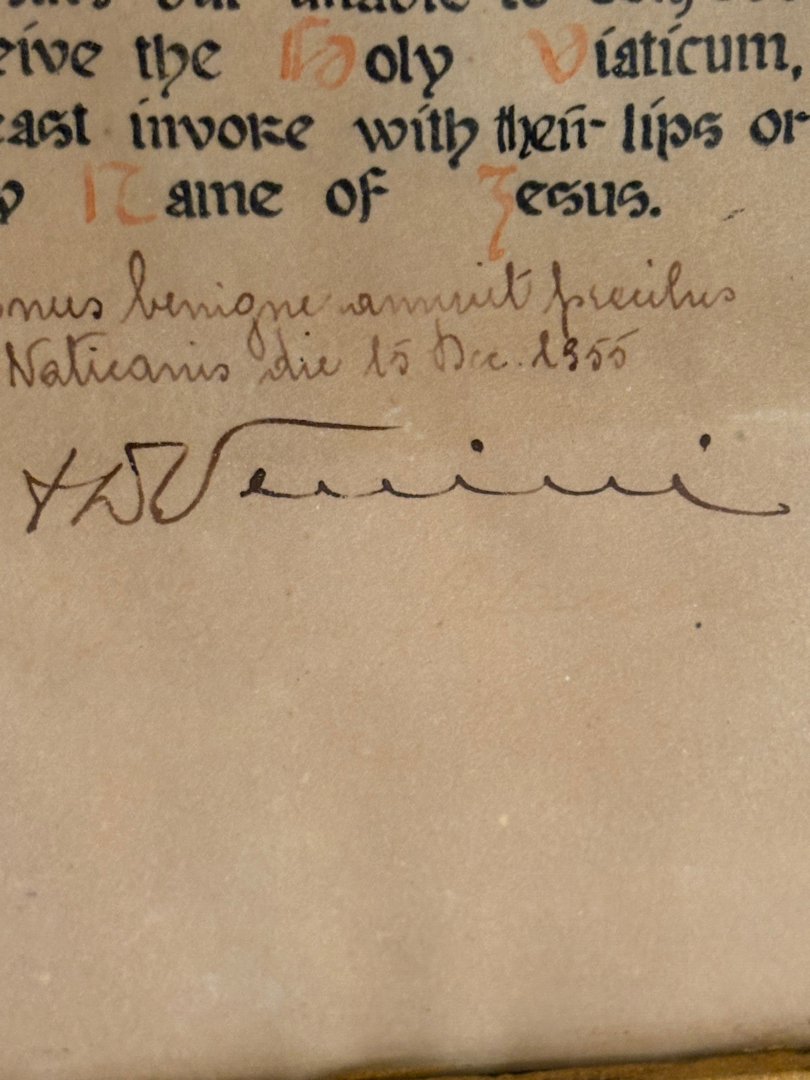 eive the Holy Viaticum,
east invoke with their lips or
y Name of Jesus.
nus benigne annuit precibus
Vaticanis die 15 Dec. 1955
+ D Venini